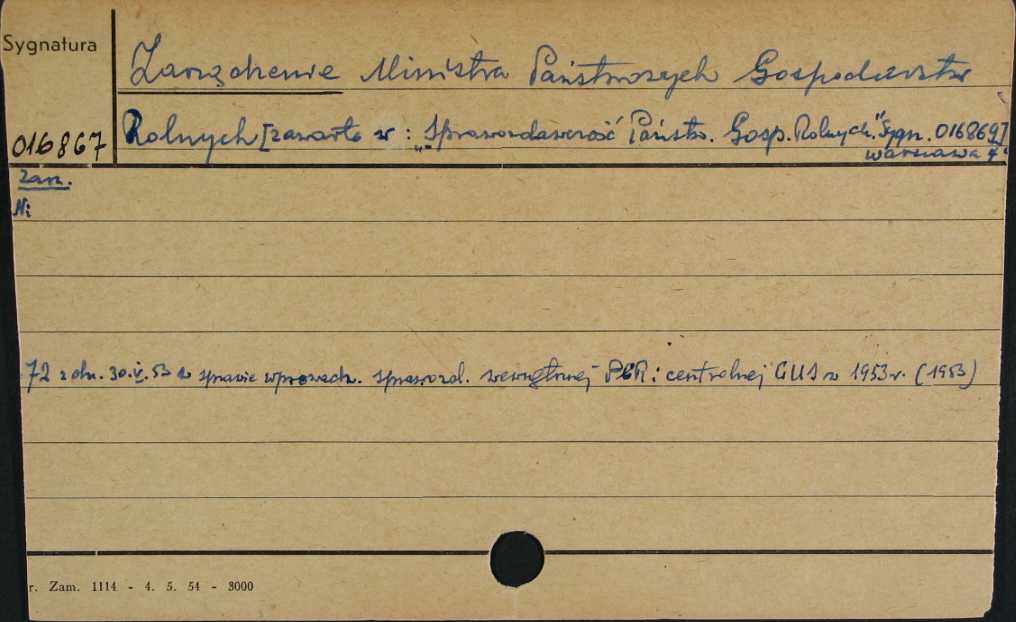 Sygnatura
Zarządzenie Ministra Państwowych Gospodarstw
016867 Rolnych [zawarte w: „Sprawozdawczość Państw. Gosp. Rolnych." Sygn. 016869]
Warszawa
Zarz.
Nr
72 z dn. 30.V.53 w sprawie wprowadz. sprawozd. wewnętrznej PGR i centralnej GUS w 1953 r. (1953)
r. Zam. 1114 - 4. 5. 54 - 3000